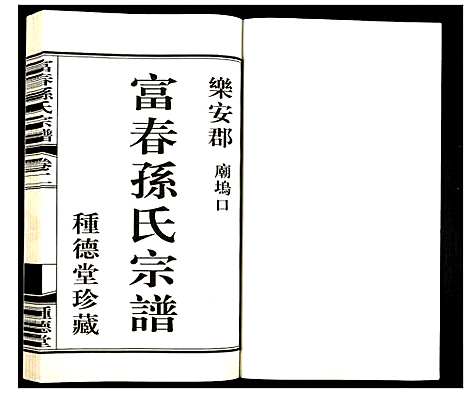 樂安郡 廟塢口
富春孫氏宗譜
種德堂珍藏
富春孫氏宗譜 卷二
種德堂